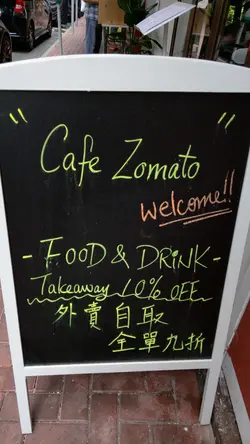 " "
Cafe Zomato
welcome!!
- FOOD & DRINK -
Takeaway 10% OFF
外賣自取
全單九折